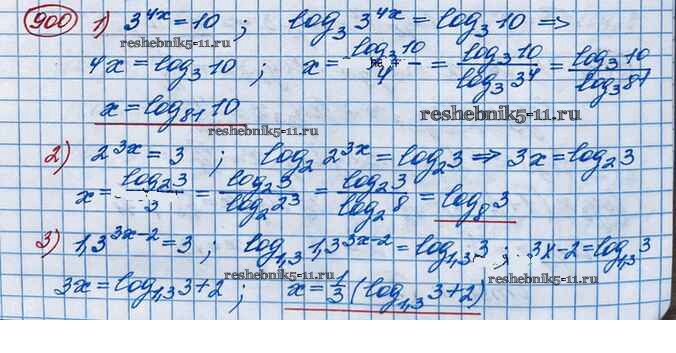 900 1) 3^{4x} = 10 ; log_3 3^{4x} = log_3 10 ⇒
reshebnik5-11.ru
4x = log_3 10 ; x = \frac{log_3 10}{4} = \frac{log_3 10}{log_3 3^4} = \frac{log_3 10}{log_3 81}
x = log_{81} 10 reshebnik5-11.ru
reshebnik5-11.ru
2) 2^{3x} = 3 ; log_2 2^{3x} = log_2 3 ⇒ 3x = log_2 3
x = \frac{log_2 3}{3} = \frac{log_2 3}{log_2 2^3} = \frac{log_2 3}{log_2 8} = log_8 3
3) 1,3^{3x-2} = 3 ; log_{1,3} 1,3^{3x-2} = log_{1,3} 3 ; 3x-2 = log_{1,3} 3
reshebnik5-11.ru
3x = log_{1,3} 3 + 2 ; x = \frac{1}{3} (log_{1,3} 3 + 2)
reshebnik5-11.ru